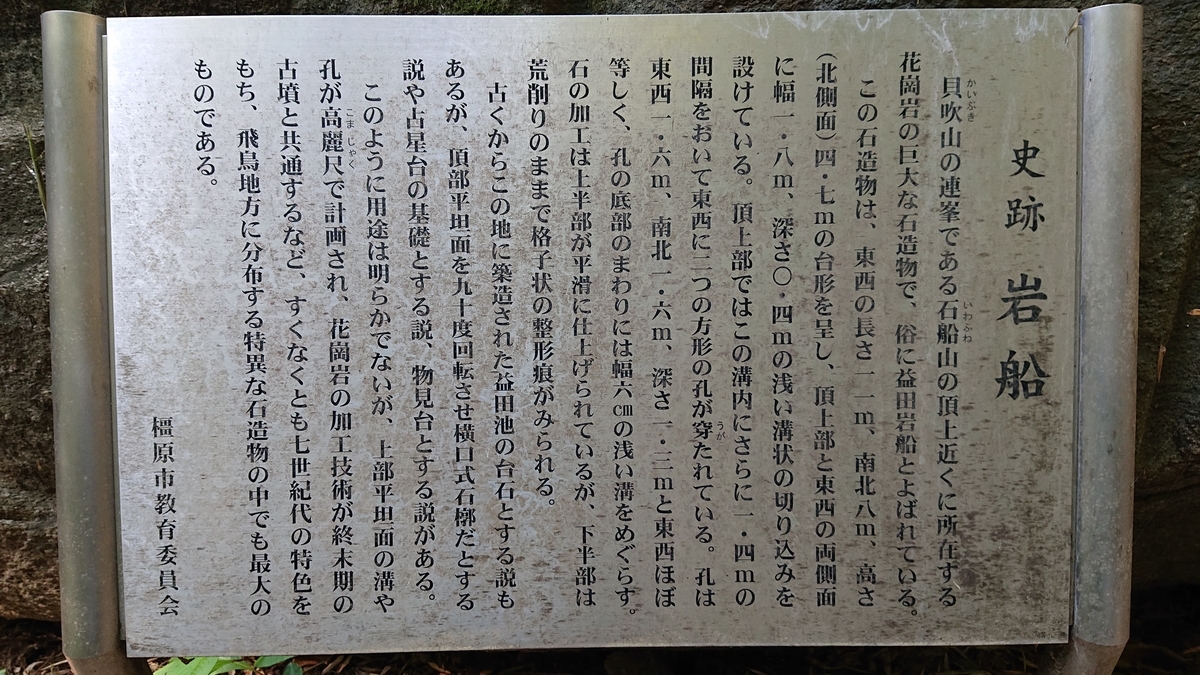 史跡 岩船
貝吹山の連峯である石船山の頂上近くに所在する
花崗岩の巨大な石造物で、俗に益田岩船とよばれている。
この石造物は、東西の長さ一一m、南北八m、高さ
(北側面)四・七mの台形を呈し、頂上部と東西の両側面
に幅一・八m、深さ〇・四mの浅い溝状の切り込みを
設けている。頂上部ではこの溝内にさらに一・四mの
間隔をおいて東西に二つの方形の孔が穿たれている。孔は
東西一・六m、南北一・六m、深さ一・三mと東西ほぼ
等しく、孔の底部のまわりには幅六㎝の浅い溝をめぐらす。
石の加工は上半部が平滑に仕上げられているが、下半部は
荒削りのままで格子状の整形痕がみられる。
古くからこの地に築造された益田池の台石とする説も
あるが、頂部平坦面を九十度回転させ横口式石槨だとする
説や占星台の基礎とする説、物見台とする説がある。
このように用途は明らかでないが、上部平坦面の溝や
孔が高麗尺で計画され、花崗岩の加工技術が終末期の
古墳と共通するなど、すくなくとも七世紀代の特色を
もち、飛鳥地方に分布する特異な石造物の中でも最大の
ものである。
橿原市教育委員会
かいぶき
いわふね
うが
こまじゃく